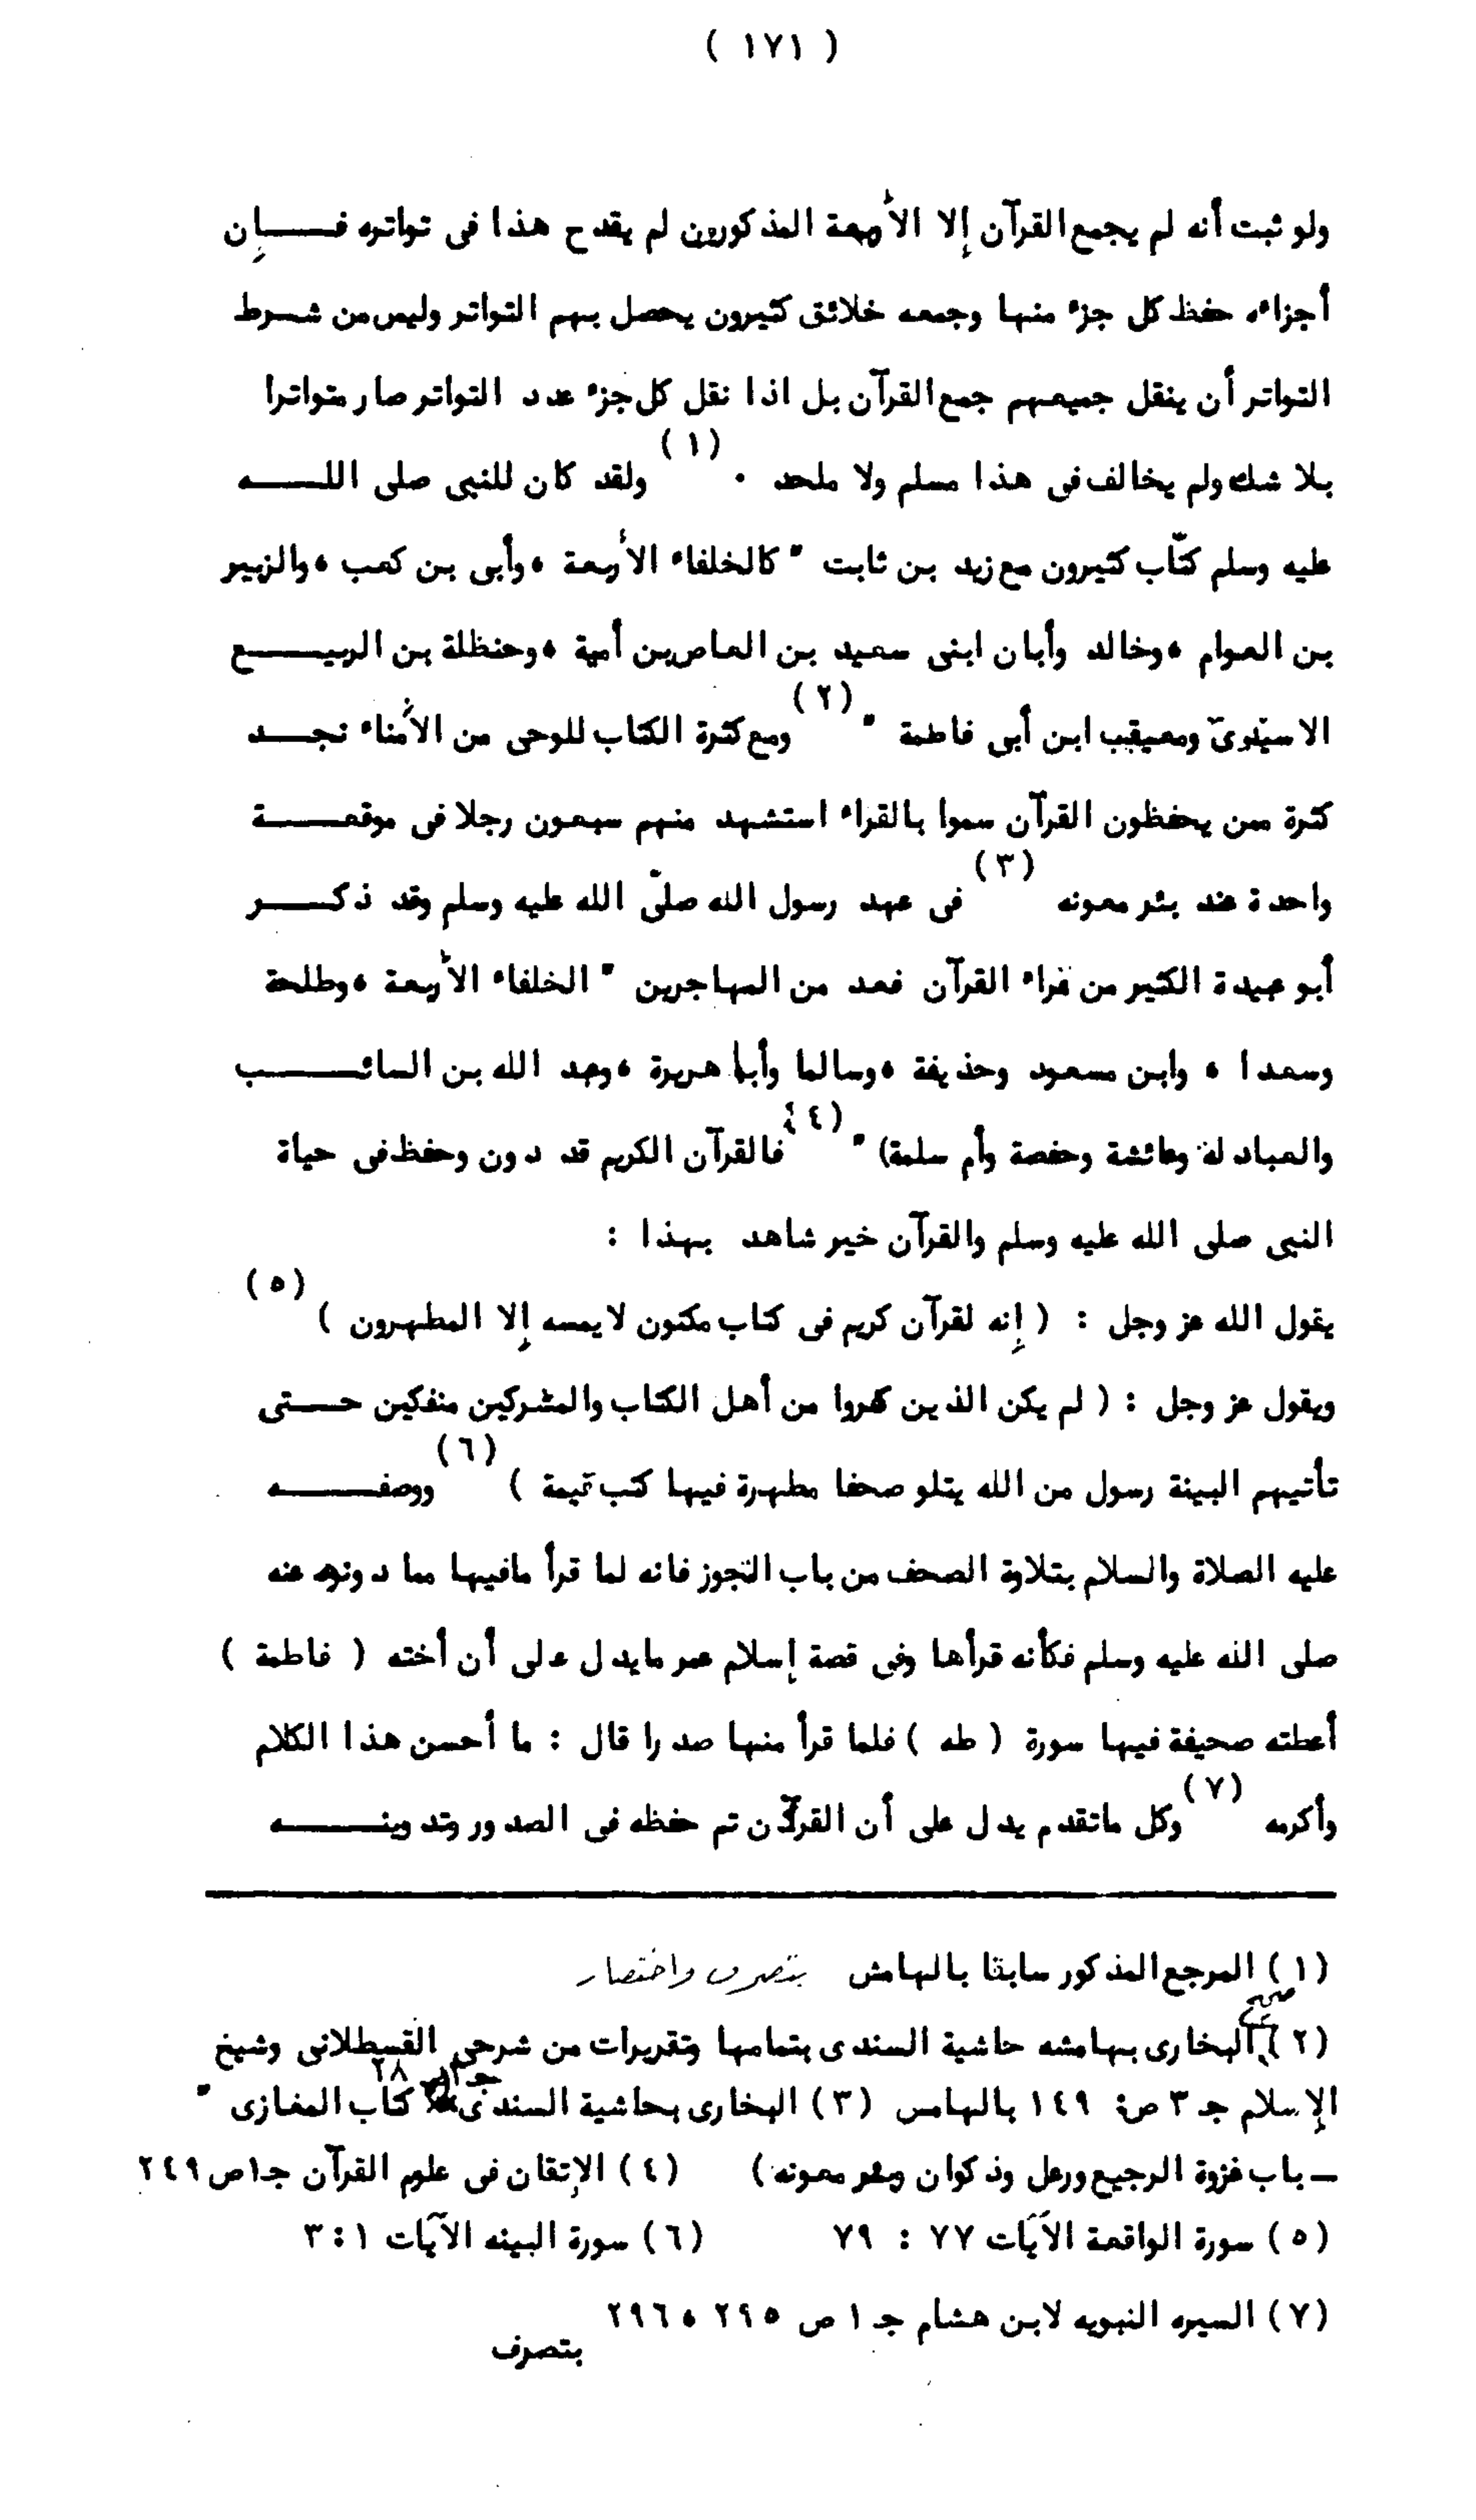 ( ١٧١ )
ولو ثبت أنه لم يجمع القرآن إلا الأربعة المذكورون لم يقدح هذا فى تواتره فإن
أجزاءه حفظ كل جزء منها وجمعه خلائق كثيرون يحصل بهم التواتر وليس من شرط
التواتر أن ينقل جميعهم جمع القرآن بل اذا نقل كل جزء عدد التواتر صار متواترا
بلا شك ولم يخالف فى هذا مسلم ولا ملحد . (١) ولقد كان للنبى صلى الله
عليه وسلم كتّاب كثيرون مع زيد بن ثابت " كالخلفاء الأربعة ، وأبى بن كعب ، والزبير
بن العوام ، وخالد وأبان ابنى سعيد بن العاص بن أمية ، وحنظلة بن الربيع
الاسيدى ومعيقب ابن أبى فاطمة " (٢) ومع كثرة الكتاب للوحى من الأمناء نجد
كثرة ممن يحفظون القرآن سموا بالقراء استشهد منهم سبعون رجلا فى موقعة
واحدة عند بئر معونه (٣) فى عهد رسول الله صلّى الله عليه وسلم وقد ذكر
أبو عبيدة الكثير من قراء القرآن فعد من المهاجرين " الخلفاء الأربعة ، وطلحة
وسعدا ، وابن مسعود وحذيفة ، وسالما وأبا هريرة ، وعبد الله بن السائب
والعبادلة وعائشة وحفصة وأم سلمة) " (٤) فالقرآن الكريم قد دون وحفظ فى حياة
النبى صلى الله عليه وسلم والقرآن خير شاهد بهذا :
يقول الله عز وجل : ( إنه لقرآن كريم فى كتاب مكنون لايمسه إلا المطهرون ) (٥)
ويقول عز وجل : ( لم يكن الذين كفروا من أهل الكتاب والمشركين منفكين حتى
تأتيهم البينة رسول من الله يتلو صحفا مطهرة فيها كتب قيمة ) (٦) ووصفه
عليه الصلاة والسلام بتلاوة الصحف من باب التجوز فانه لما قرأ مافيها مما دونوه عنه
صلى الله عليه وسلم فكأنه قرأها وفى قصة إسلام عمر مايدل على أن أخته ( فاطمة )
أعطته صحيفة فيها سورة ( طه ) فلما قرأ منها صدرا قال : ما أحسن هذا الكلام
وأكرمه (٧) وكل ماتقدم يدل على أن القرآن تم حفظه فى الصدور وتدوينه
(١) المرجع المذكور سابقا بالهامش بتصرف واختصار
(٢) صحيح البخارى بهامشه حاشية السندى بتمامها وتقريرات من شرحى القسطلانى وشيخ
الإسلام جـ ٣ ص: ١٤٩ بالهامس (٣) البخارى بحاشية السندى جـ٣ ص ٢٨ كتاب المغازى "
ــ باب غزوة الرجيع ورعل وذكوان وبئر معونه) (٤) الإتقان فى علوم القرآن جـ١ص ٢٤٩
(٥) سورة الواقعة الآيات ٧٧ : ٧٩ (٦) سورة البينه الآيات ١ : ٣
(٧) السيره النبويه لابن هشام جـ ١ ص ٢٩٥ ، ٢٩٦
بتصرف